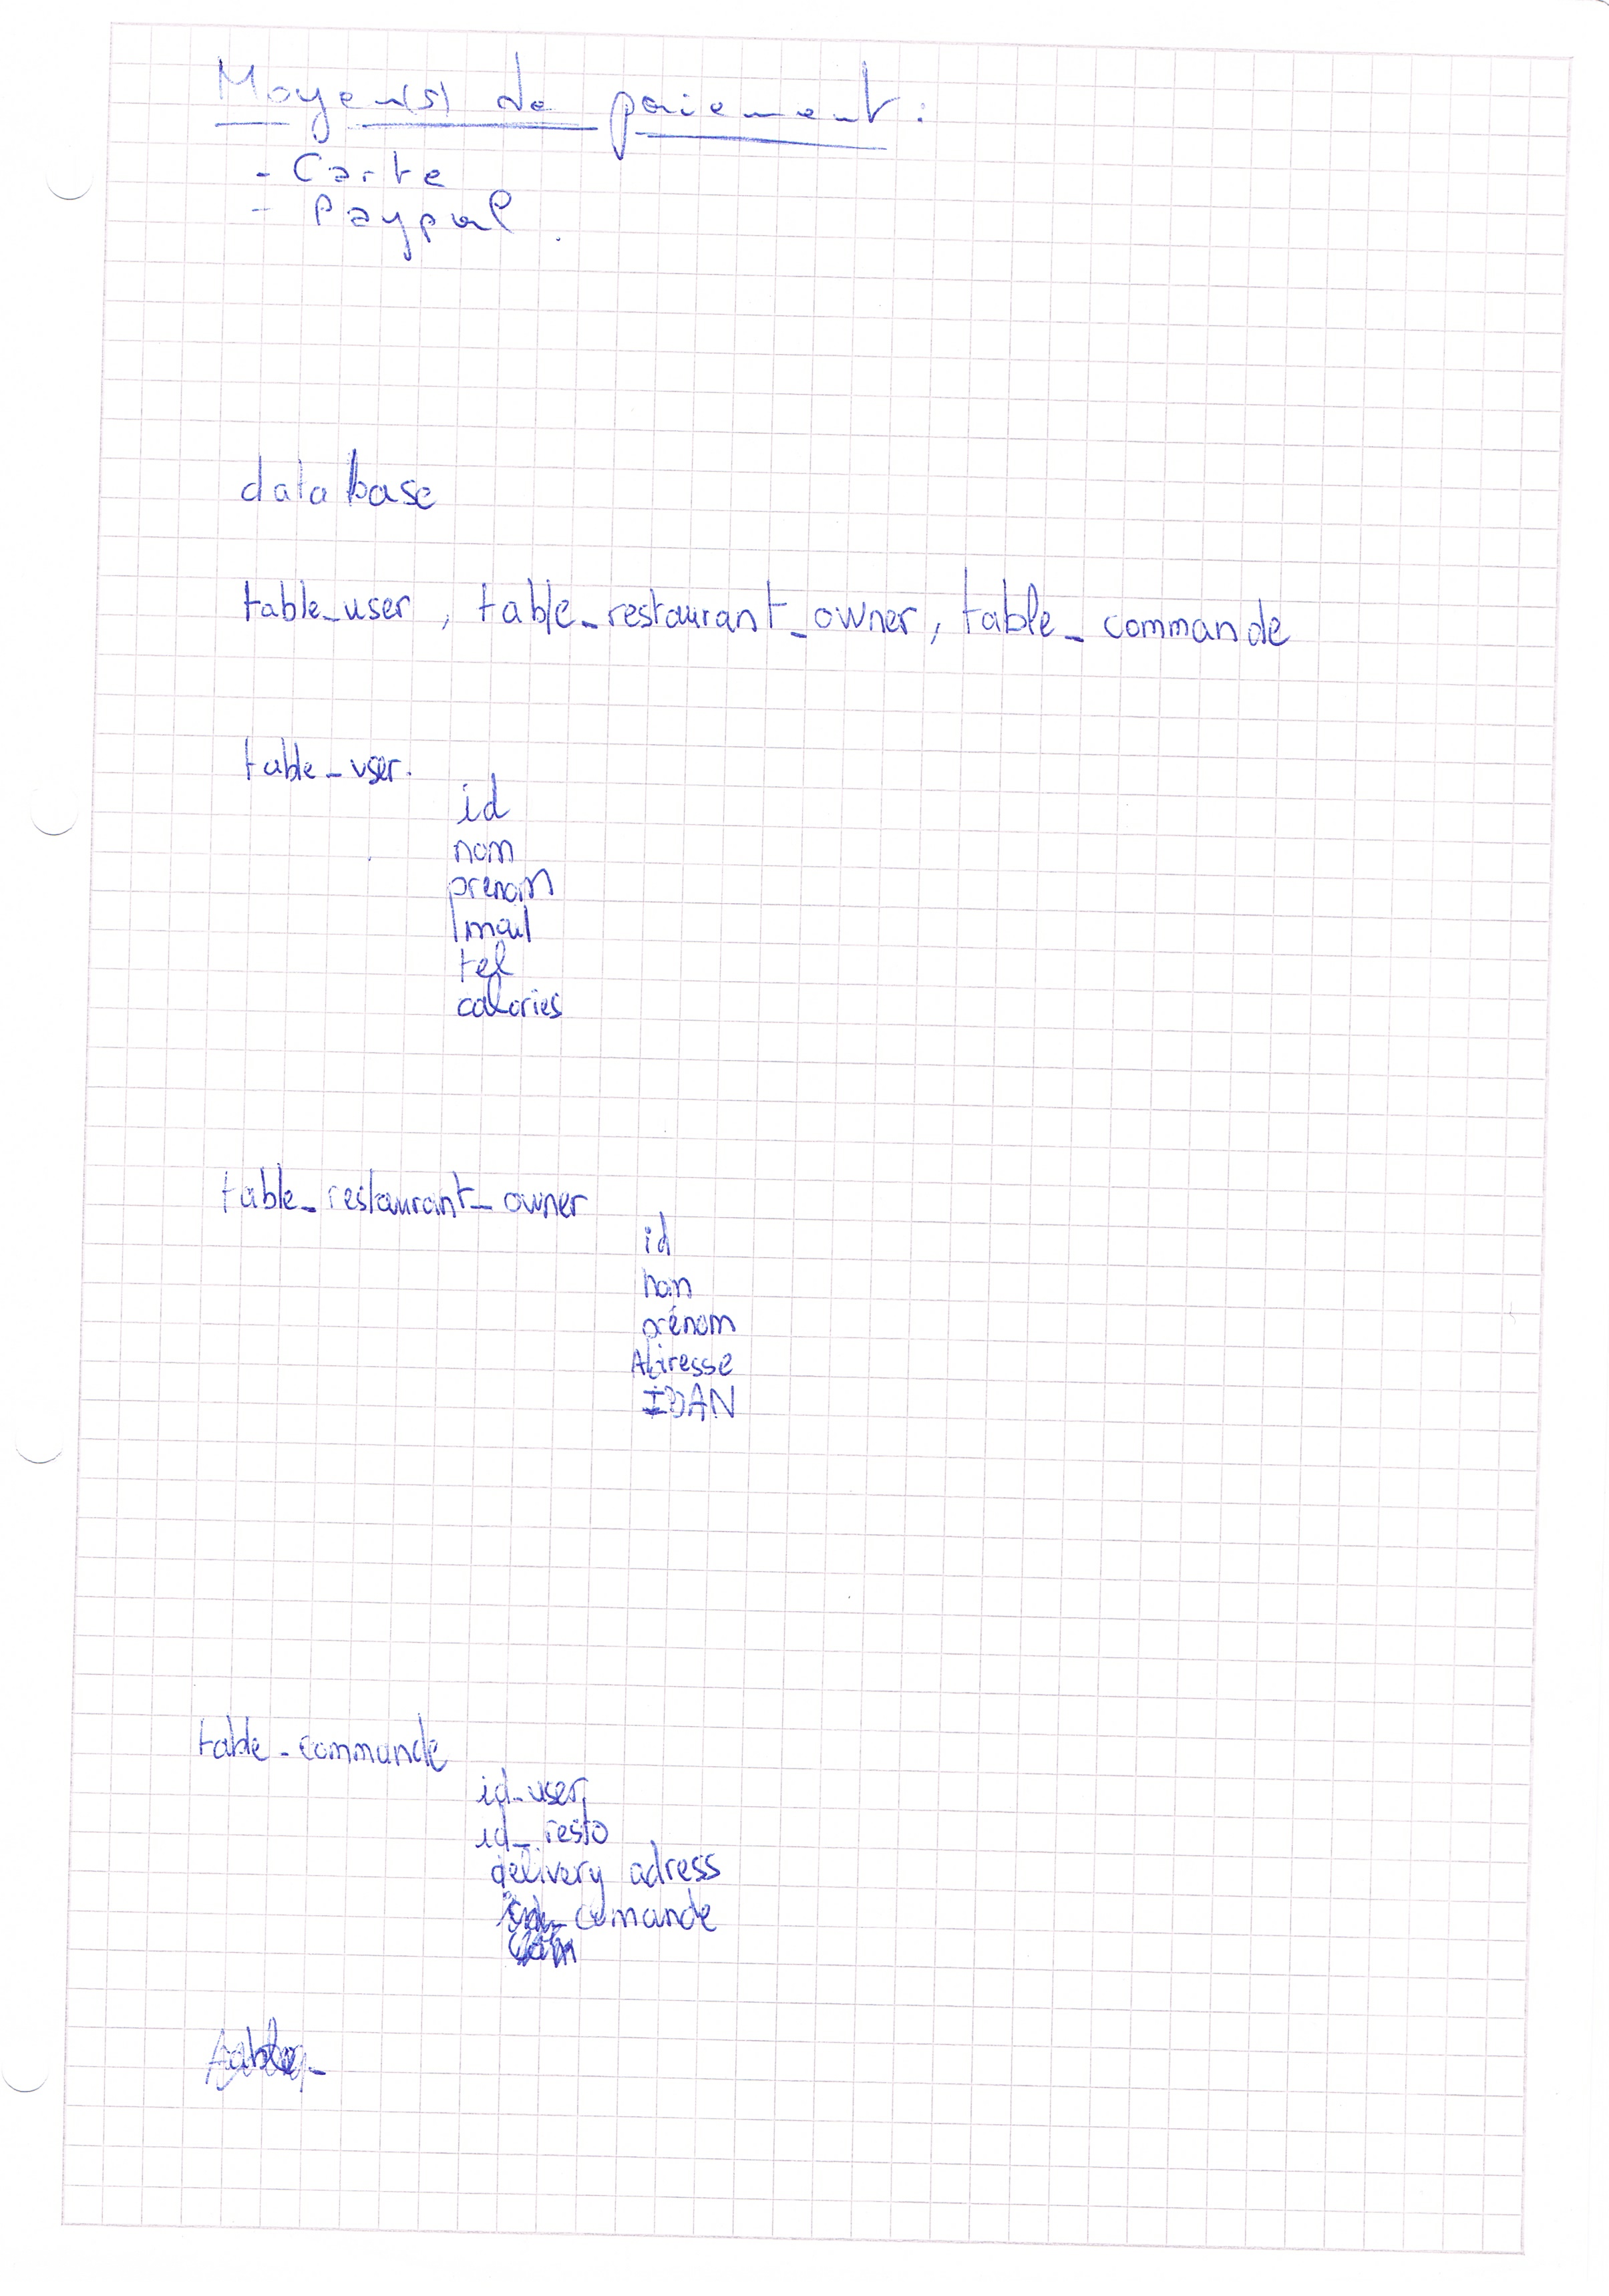 Moyen(s) de paiement :
- Carte
- Paypal.
database
table_user, table_restaurant_owner, table_commande
table_user.
id
nom
prenom
mail
tel
calories
table_restaurant_owner
id
nom
prénom
Adresse
IBAN
table_commande
id_user
id_resto
delivery adress
comande